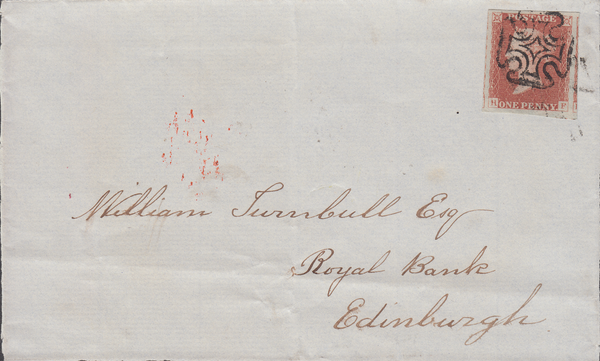 POSTAGE
ONE PENNY
William Turnbull Esq
Royal Bank
Edinburgh